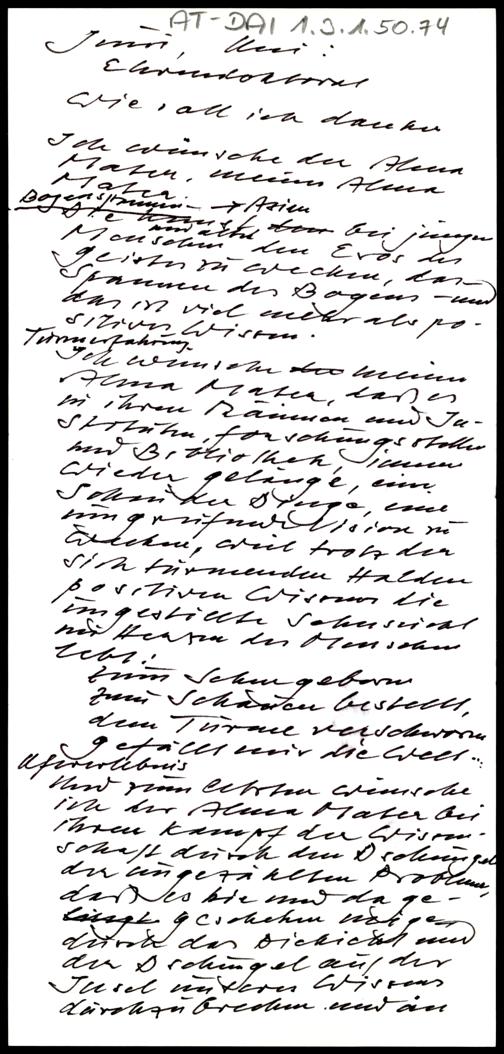 AT-DAI 1.3.1.50.74
Ehrendoktorat
Wie soll ich danken
Ich wünsche der Alma
Mater, meiner Alma
Mater.
Bogenspannen → Asien
Die bei jungen
Menschen den Eros des
Geistes zu wecken, das
Spannen des Bogens – und
das ist viel mehr als po-
sitives Wissen.
Turmerfahrung
Ich wünsche meiner
Alma Mater, daß es
in ihren Räumen und In-
stituten, Forschungsstellen
und Bibliothek, immer
wieder gelänge, eine
Schau der Dinge, eine
umgreifende Vision zu
wecken, weil trotz der
sich türmenden Halden
positiven Wissens die
ungestillte Sehnsucht
im Herzen des Menschen
lebt:
zum Sehen geboren
zum Schauen bestellt,
dem Turme verschworen
gefällt mir die Welt...
Ufererlebnis
Und zum letzten wünsche
ich der Alma Mater bei
ihrem Kampf der Wissen-
schaft durch den Dschungel
der ungezählten Probleme,
daß es hie und da ge-
lingt geschehen möge
durch das Dickicht und
den Dschungel auf der
Insel unseres Wissens
durchzubrechen und an